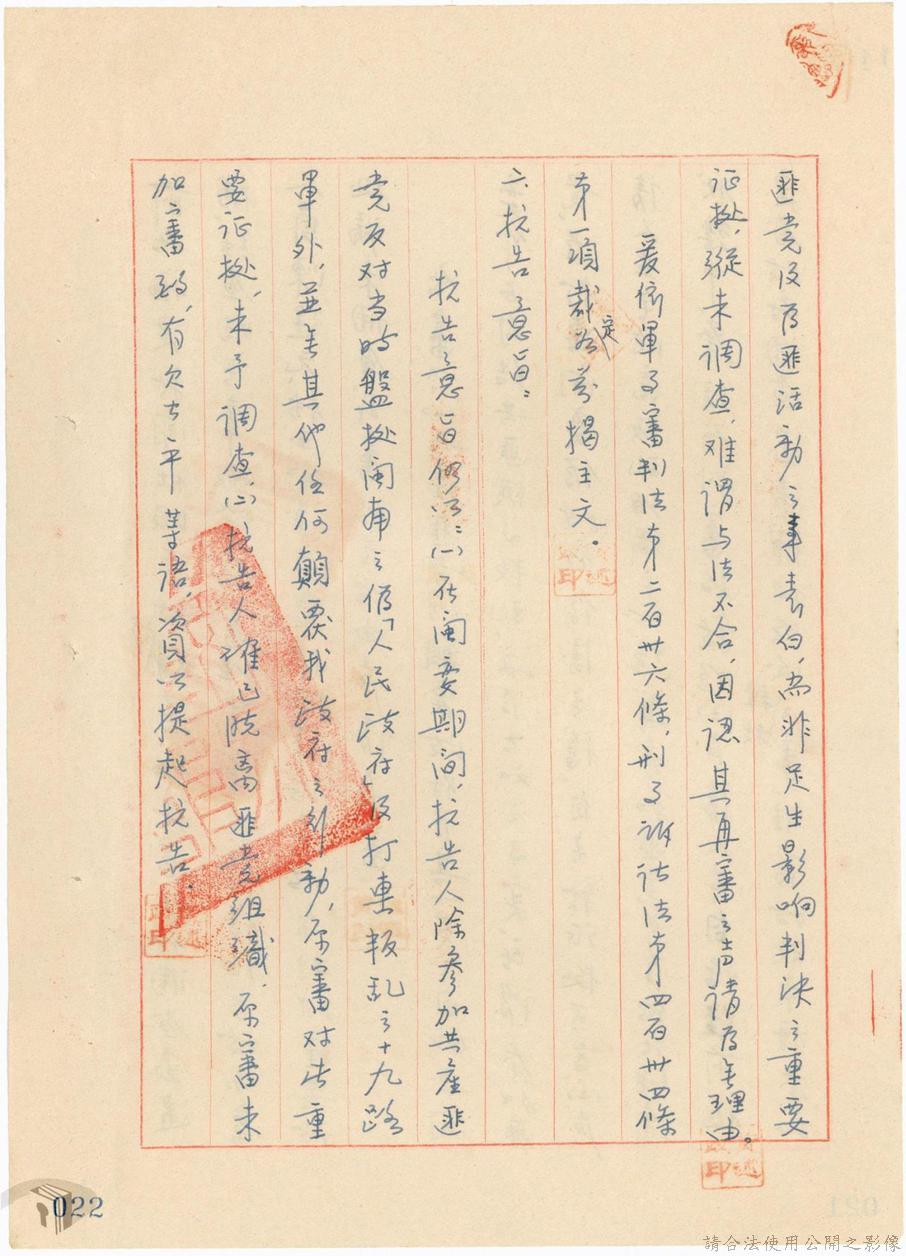 匪党及为匪活动之事表白，尚非足生影响判决之重要
证据，縱未调查，难谓与法不合，因認其再審之声请为无理由。
爰依軍事審判法第二百卅六條，刑事诉讼法第四百卅四條
第一項裁定如前揭主文。
六、抗告意旨：
抗告意旨係以：(一)在闽变期间，抗告人除參加共產匪
党反对当时盤据闽南之偽「人民政府」及打击叛乱之十九路
軍外，並无其他任何顛覆我政府之行動，原審对此重
要证据，未予调查，(二)抗告人確已脱离匪党组織，原審未
加審酌，有欠公平等语，資以提起抗告。
022
請合法使用公開之影像